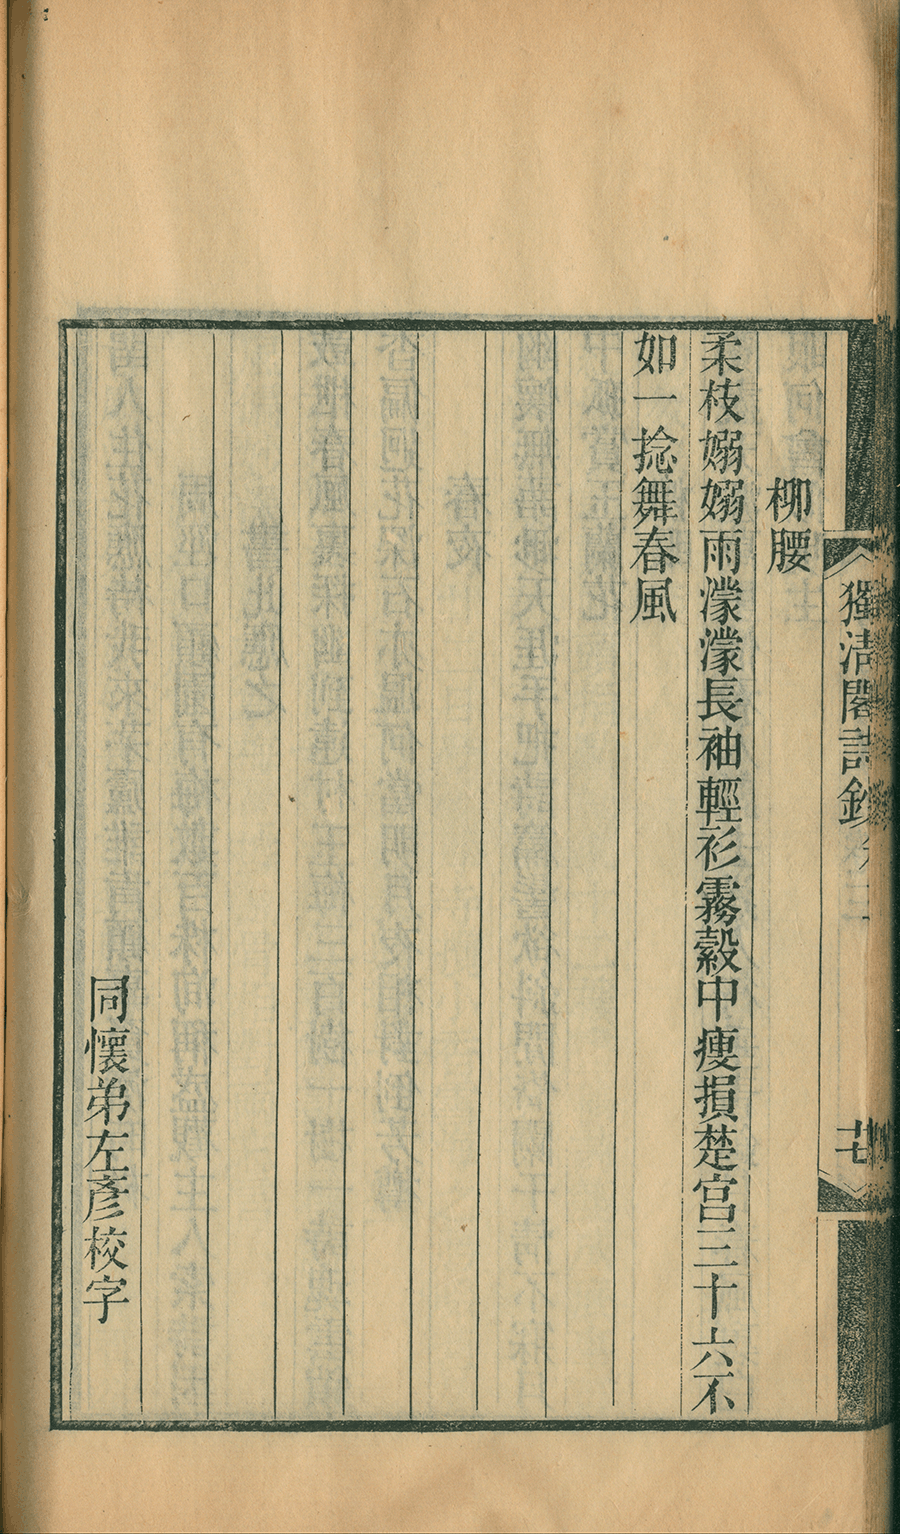 獨清閣詩鈔
卄七
柳腰
柔枝嫋嫋雨濛濛長袖輕衫霧縠中瘦損楚宮三十六不
如一捻舞春風
同懷弟左彥校字